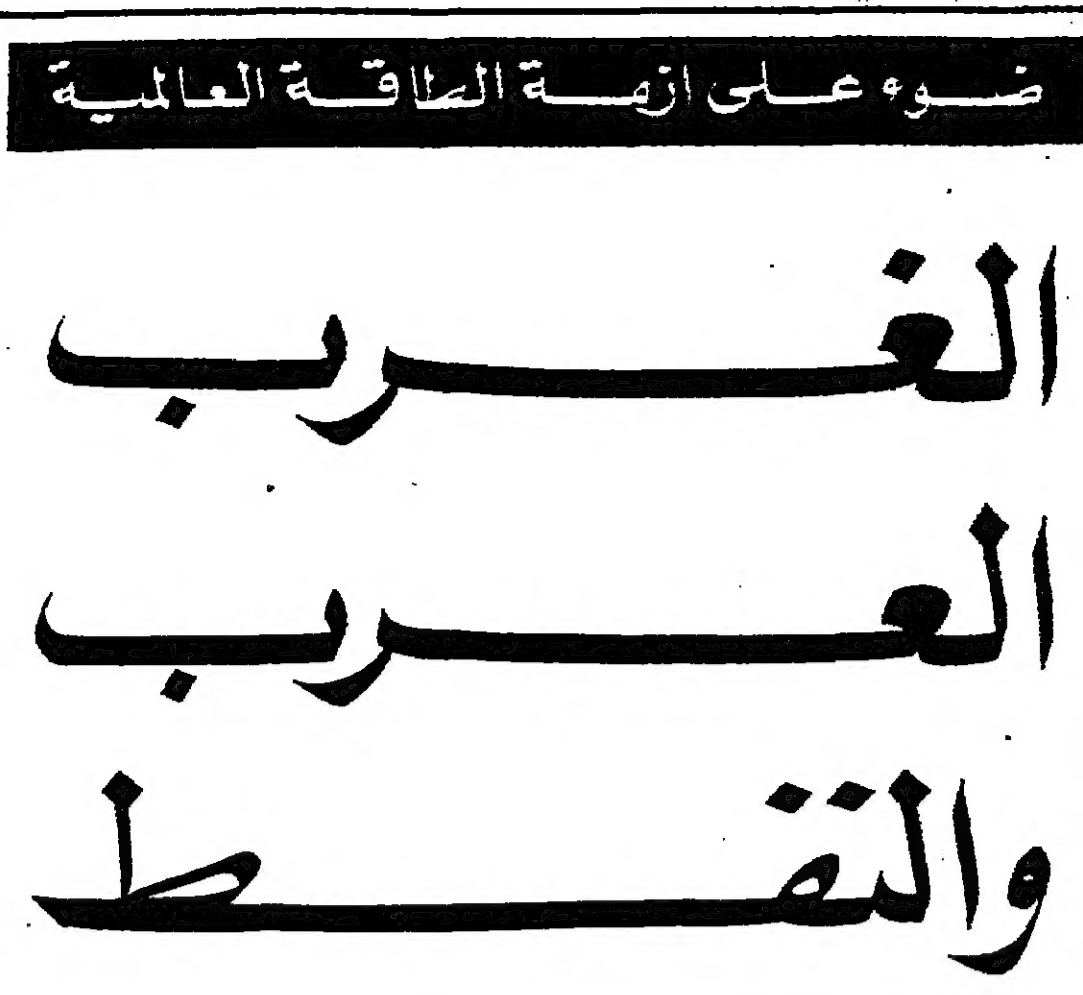 ضوء على ازمة الطاقة العالمية
الغرب
العرب
والنفط